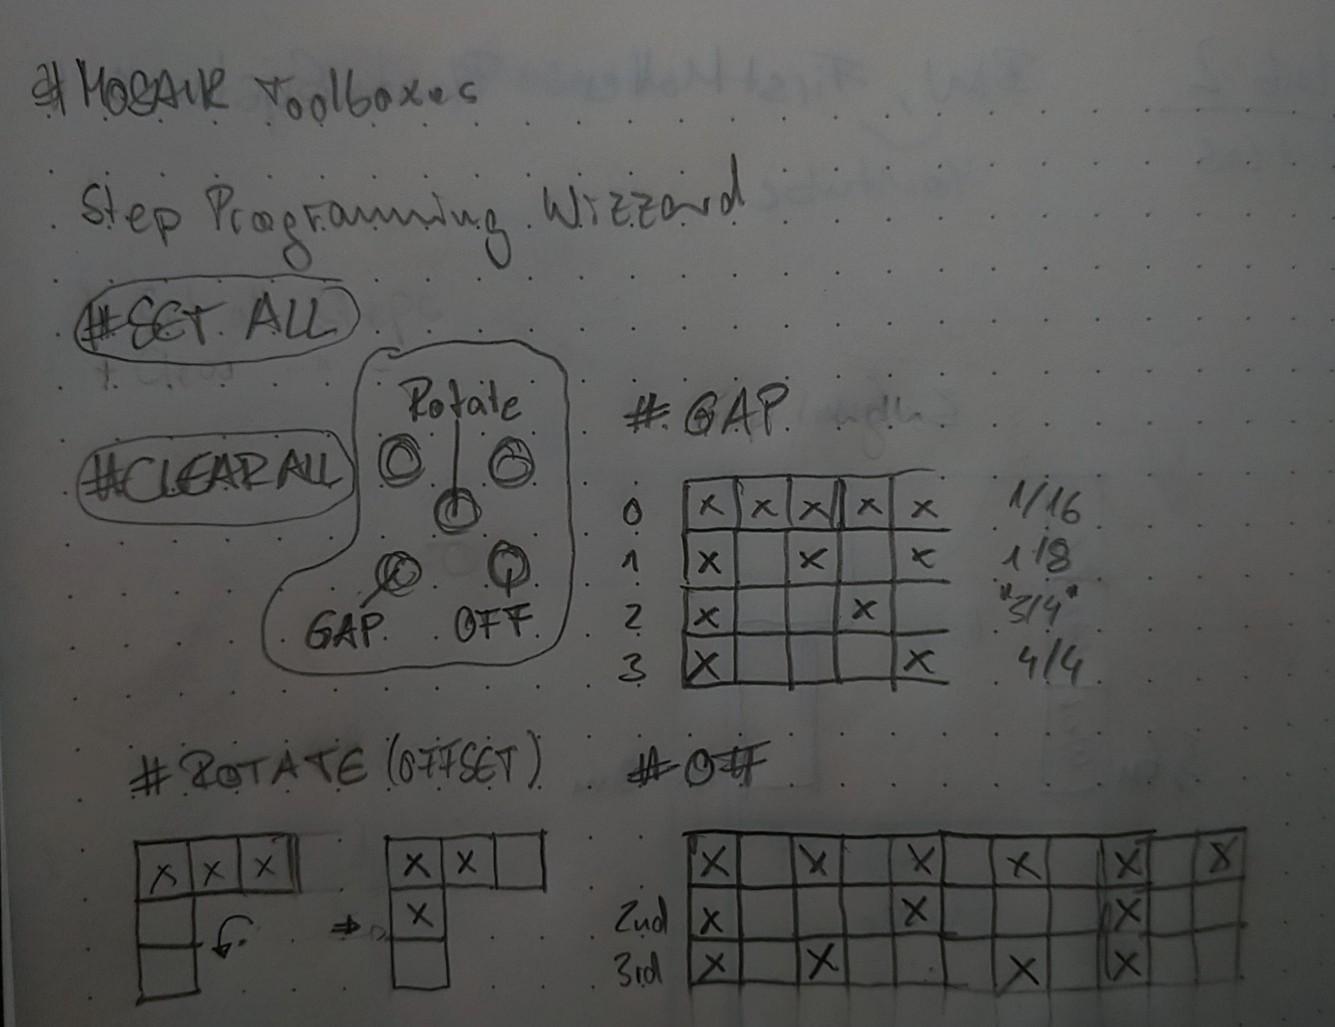 # MOSAIK Toolboxes
Step Programming Wizzard
#SET ALL
#CLEAR ALL
Rotate
GAP
OFF
# GAP
0 x x x x x 1/16
1 x x x 1/8
2 x x "3/4"
3 x x 4/4
# ROTATE (OFFSET)
x x x
⇒
x x
x
# OFF
x x x x x x
2nd x x x
3rd x x x x